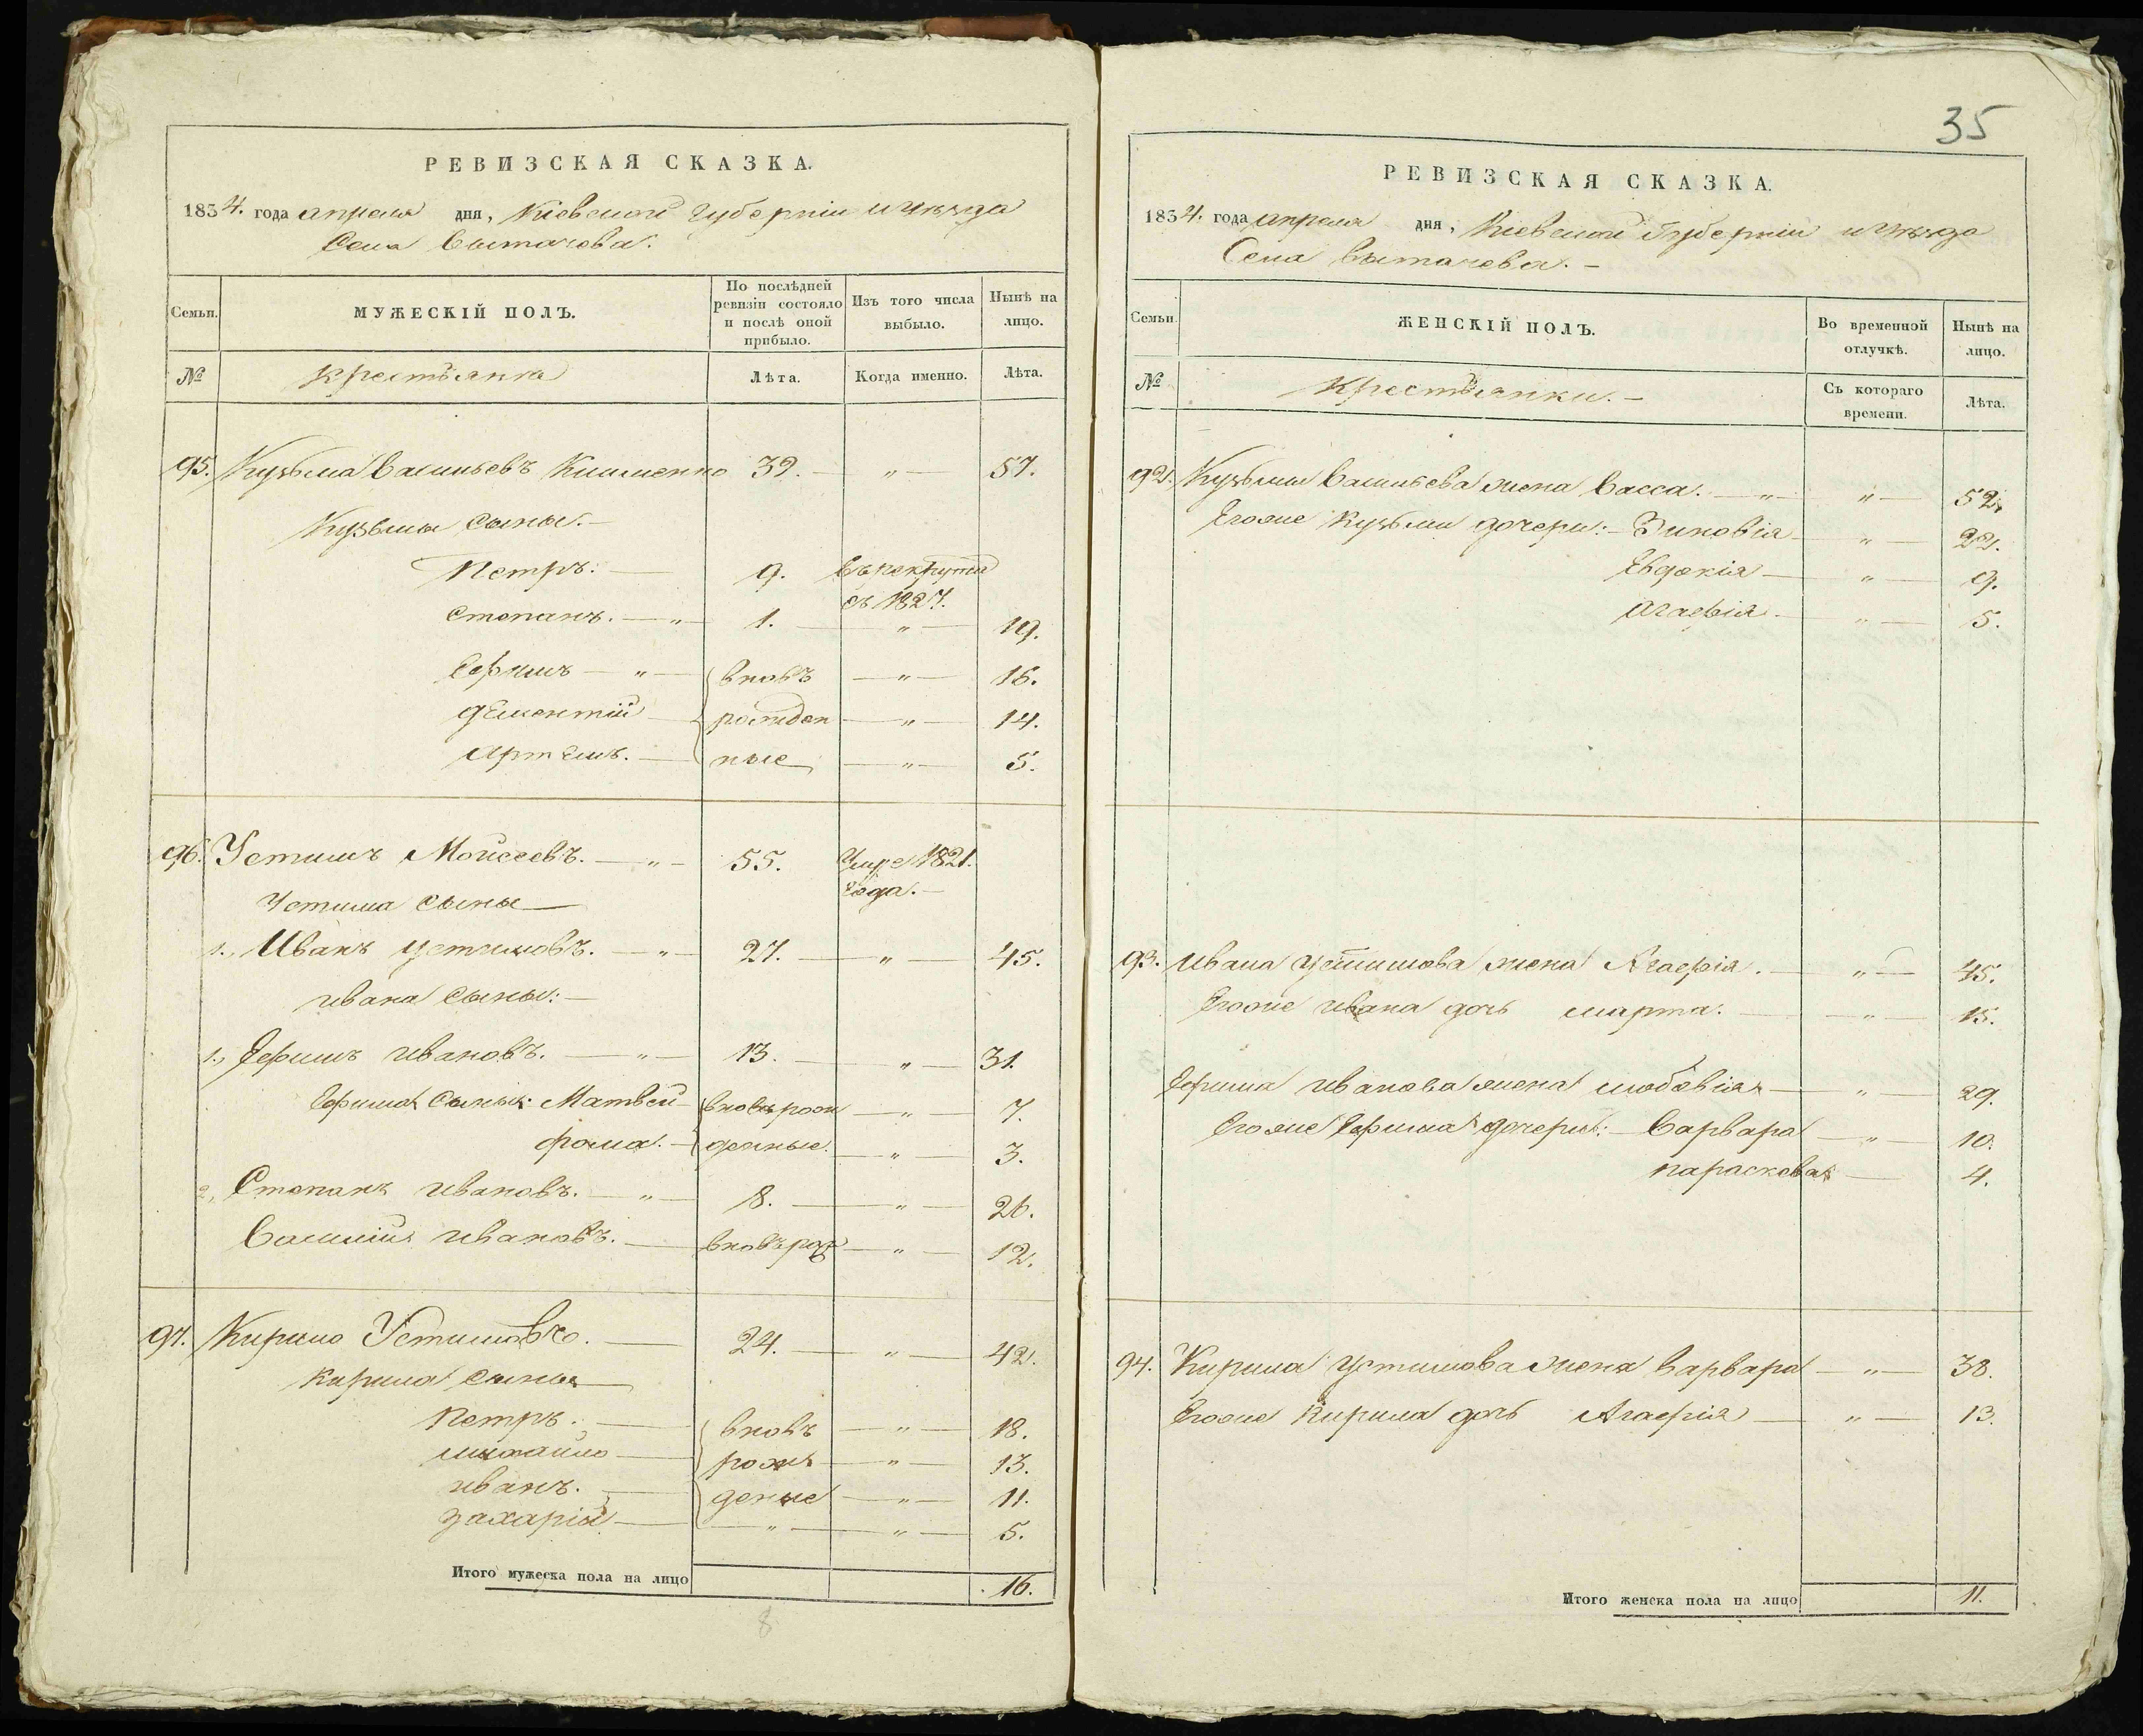 РЕВИЗСКАЯ СКАЗКА.
1834. года апреля дня, Кіевской губерніи и уѣзда
Села Вытачева.
Семьи.
МУЖЕСКІЙ ПОЛЪ.
По послѣдней ревизіи состояло и послѣ оной прибыло.
Изъ того числа выбыло.
Нынѣ на лицо.
№
Крестьяна
Лѣта.
Когда именно.
Лѣта.
95. Кузьма Васильевъ Клименко 39. — „ — 57.
Кузьмы сыны. —
Петръ. — 9. въ рекрута
съ 1827.
Степанъ. — „ — 1. — „ — 19.
Ефимъ — „ — вновъ — „ — 16.
Дементій — рожден — „ — 14.
Артемъ. — ные — „ — 5.
96. Устимъ Мойсеевъ. — „ — 55. Умре 1821.
года. —
Устима сыны —
1., Иванъ Устимовъ. — „ — 27. — „ — 45.
Ивана сыны: —
1., Ефимъ Ивановъ. — „ — 13. — „ — 31.
Ефима сыны: Матвей — вновъ рож — „ — 7.
Фома. — денные. — „ — 3.
2., Степанъ Ивановъ. — „ — 8. — „ — 26.
Василій Ивановъ. — вновъ рож — „ — 12.
97. Кирило Устимовъ. — 24. — „ — 42.
Кирила сыны —
Петръ. — вновъ — „ — 18.
Михайло — рож — „ — 13.
Иванъ. — деные — „ — 11.
Захарій — „ — „ — 5.
Итого мужеска пола на лицо 16.
8
35
РЕВИЗСКАЯ СКАЗКА.
1834. года апреля дня, Кіевской Губерніи и уѣзда
Села Вытачева. —
Семьи.
ЖЕНСКІЙ ПОЛЪ.
Во временной отлучкѣ.
Нынѣ на лицо.
№
Крестьянки. —
Съ котораго времени.
Лѣта.
92. Кузьмы Васильева жена Васса. — „ — „ — 52.
Егоже Кузьмы дочери: — Зиновія — „ — 22.
Евдокія — „ — 9.
Агафія. — „ — 5.
93. Ивана Устимова жена Агафія. — „ — 45.
Егоже Ивана дочь Марта: — „ — 15.
Ефима Иванова жена Любовія — „ — 29.
Егоже Ефима дочери: — Варвара — „ — 10.
Парасковія — 4.
94. Кирила Устимова жена Варвара — „ — 38.
Егоже Кирила дочь Агафія — „ — 13.
Итого женска пола на лицо 11.